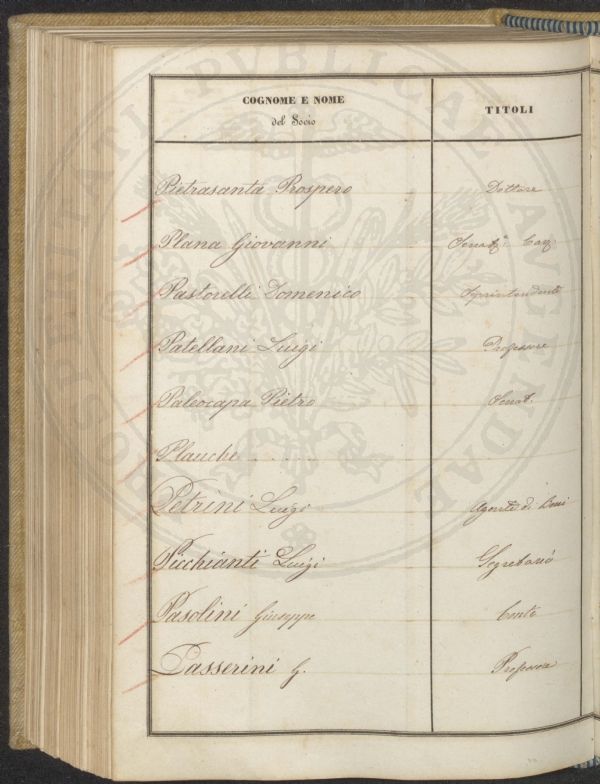 COGNOME E NOME
del Socio
TITOLI
Pietrasanta Prospero Dottore
Plana Giovanni Cav.
Pastorelli Domenico Soprintendente
Patellani Luigi Professore
Paleocapa Pietro Senat.
Planche . . . . .
Petrini Luigi Agente di Beni
Picchianti Luigi Segretario
Pasolini Giuseppe Conte
Passerini G. Professore
PROSPERITATI PUBLICAE AUGENDAE